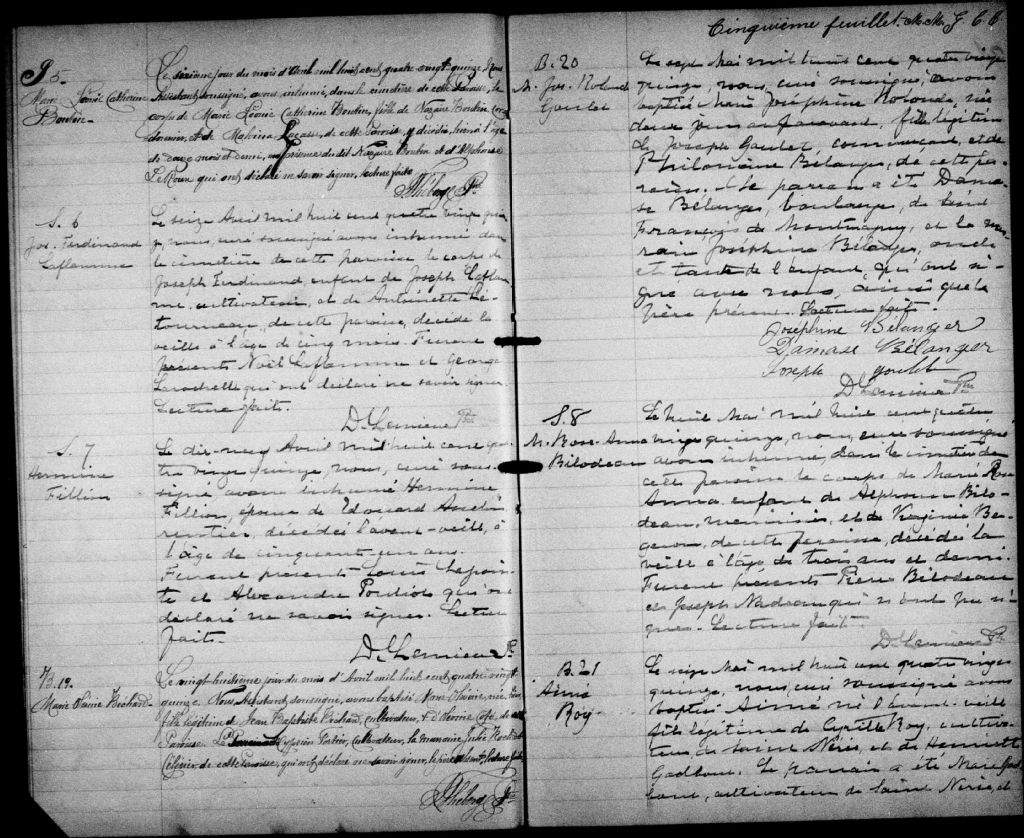 S. 5
Marie Léonie Catherine
Boutin
Le sixième jour du mois d'Avril mil huit cent quatre vingt quinze, Nous
Assistant soussigné, avons inhumé, dans le cimetière de cette Paroisse, le
corps de Marie Léonie Catherine Boutin, fille de Nazaire Boutin cor
donnier, et de Malvina, de cette Paroisse, y décédée, hier à l'âge
de douze mois et demi, en présence du dit Nazaire Boutin et d'Alphonse
qui ont déclaré ne savoir signer, lecture faite
Théberge Ptre
S. 6
Jos. Ferdinand
Laflamme
Le seize Avril mil huit cent quatre vingt quin
ze, nous, curé soussigné avons inhumé dans
le cimetière de cette paroisse le corps de
Joseph Ferdinand, enfant de Joseph Laflam
me, cultivateur, et de Antoinette Lé
tourneau, de cette paroisse, décédé la
veille à l'âge de cinq mois. Furent
présents Noël Laflamme et George
Larochelle qui ont déclaré ne savoir signer.
Lecture faite.
D. Lemieux Ptre
S. 7
Hermine
Fillion
Le dix-neuf Avril mil huit cent qua
tre vingt quinze, nous, curé sous
signé avons inhumé Hermine
Fillion, épouse de Edouard Asselin,
rentier, décédée l'avant-veille, à
l'âge de cinquante-un ans.
Furent présents Louis Lapoin
te et Alexandre Pouliot qui ont
déclaré ne savoir signer. Lecture
faite.
D. Lemieux Ptre
B. 19.
Marie Béchard
Le vingt huitième jour du mois d'Avril mil huit cent quatre vingt
quinze Nous Assistant soussigné, avons baptisé Marie, née hier,
fille légitime de Jean Baptiste Béchard, cultivateur, et de cette
Paroisse. Le Parrain Cyprien, cultivateur, la marraine Julie
de cette Paroisse, qui ont déclaré ne savoir signer, le père absent, lecture faite
Théberge Ptre
Cinquième feuillet. M. M. G. C. S.
B. 20
M. Jos. Rolande
Goulet
Le sept Mai mil huit cent quatre vingt
quinze, nous, curé soussigné, avons
baptisé Marie Joséphine Rolande, née
deux jours auparavant, fille légitime
de Joseph Goulet, commerçant, et de
Philomène Bélanger, de cette pa
roisse. Le parrain a été Dama
se Bélanger, boulanger, de Saint
François de Montmagny, et la mar
raine Joséphine Bélanger, oncle
et tante de l'enfant, qui ont si
gné avec nous, ainsi que le
père présent. Lecture faite.
Josephine Bélanger
Damase Bélanger
Joseph goulet
D. Lemieux Ptre
S. 8
M. Rose-Anna
Bilodeau
Le huit Mai mil huit cent quatre
vingt quinze, nous, curé soussigné
avons inhumé, dans le cimetière de
cette paroisse le corps de Marie Rose
Anna enfant de Alphonse Bilo
deau, menuisier, et de Virginie Ber
geron, de cette paroisse, décédée la
veille à l'âge de trois ans et demi.
Furent présents Pierre Bilodeau
et Joseph Nadeau qui n'ont pu si
gner. Lecture faite.
D. Lemieux Ptre
B. 21
Aimé
Roy
Le seize Mai mil huit cent quatre vingt
quinze, nous, curé soussigné avons
baptisé Aimé né l'avant-veille
fils légitime de Cyrille Roy, cultiva
teur de Saint Nérée, et de Henriette
Gadbois. Le parrain a été Marc
cultivateur de Saint Nérée, et